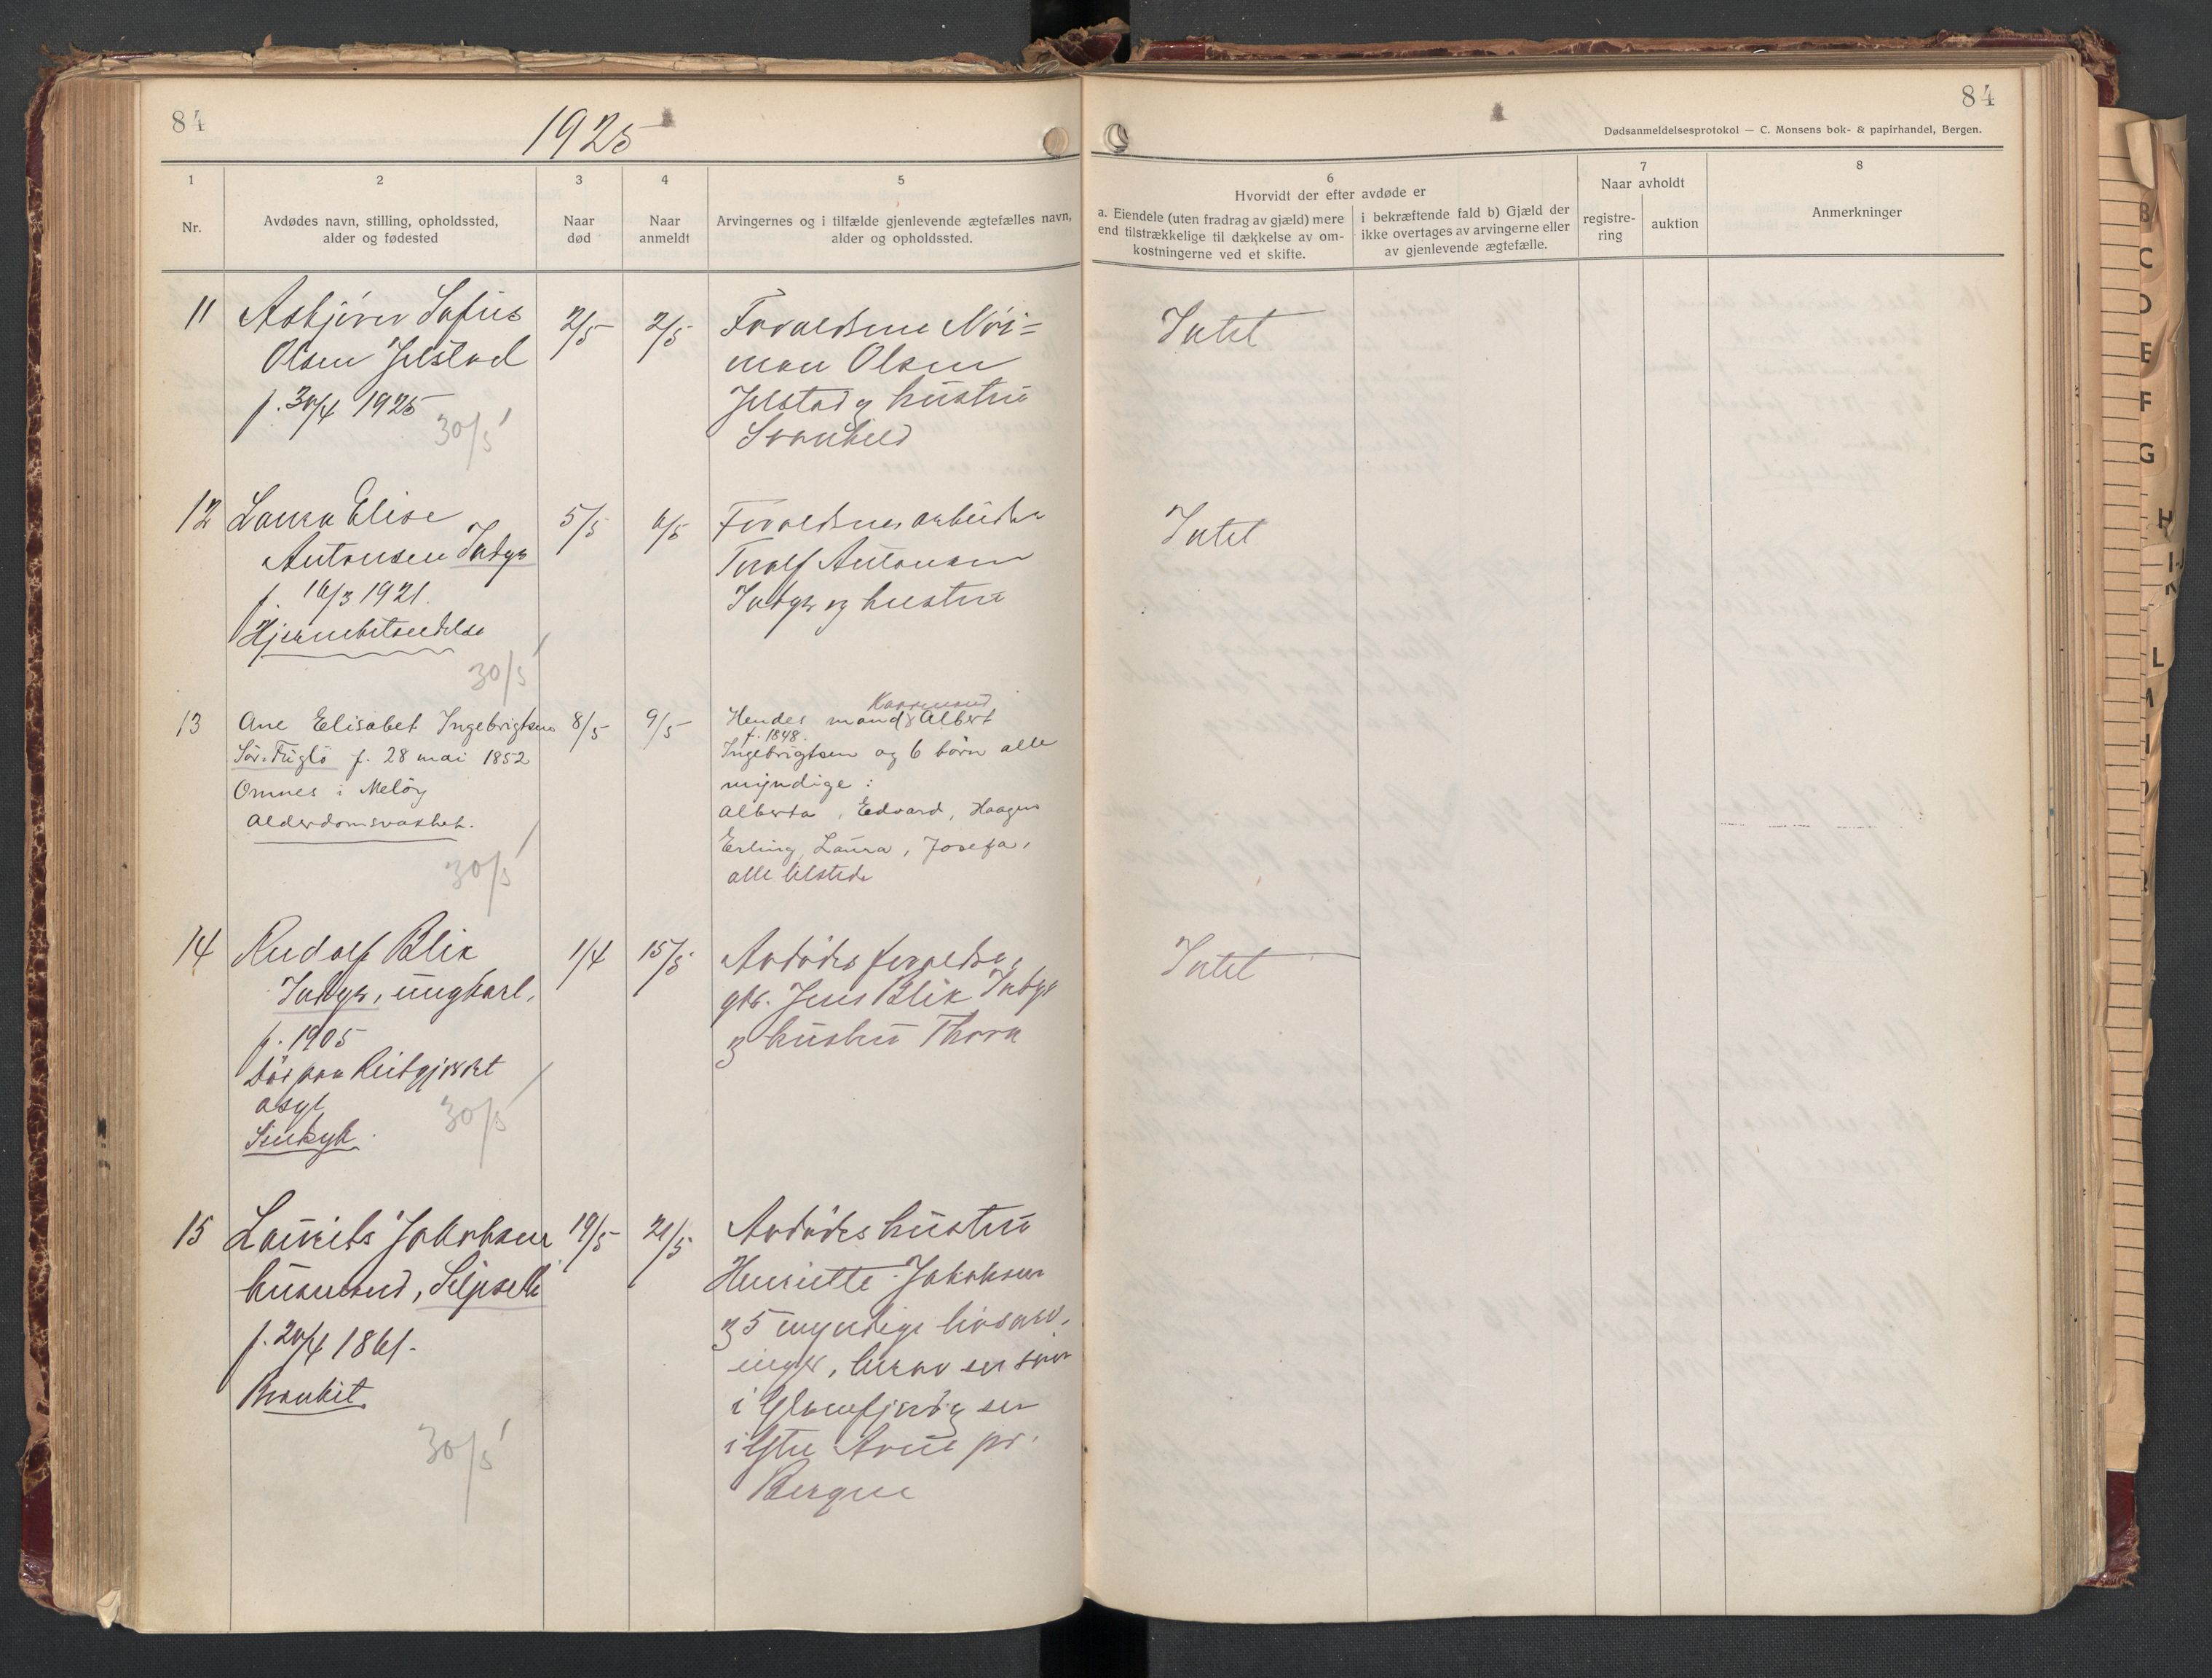 84
1925
1
2
3
4
5
Nr.
Avdødes navn, stilling, opholdssted,
alder og fødested
Naar
død
Naar
anmeldt
Arvingernes og i tilfælde gjenlevende ægtefælles navn,
alder og opholdssted.
11
Asbjörn Sofus
Olsen Jelstad
f. 30/4 1925
30/5
2/5
2/5
Forældrene Nor=
man Olsen
Jelstad og hustru
Svanhild
12
Laura Elise
Antonsen Indyr
f. 16/3 1921.
Hjernebetændelse
30/5
5/5
6/5
Forældrene, arbeider
Torolf Antonsen
Indyr og hustru
13
Ane Elisabet Ingebrigtsen
Sör-Fuglö f. 28 mai 1852
Omnes i Melöy
Alderdomsvakhet.
30/5
8/5
9/5
Hendes mand Albert
f. 1848.
Ingebrigtsen og 6 börn alle
myndige :
Alberta, Edvard, Haagen
Erling, Laura, Josefa,
alle tilstede
14
Rudolf Blix
Indyr, ungkarl,
f. 1905
Död paa Reitgjerdet
asyl
Sindsyk
30/5
1/4
15/5
Avdödes forældre,
gbr. Jens Blix Indyr
og hustru Thora
15
Laurits Jakobsen
husmand, Selpseth
f. 20/4 1861.
Bronkit
30/5
19/5
21/5
Avdödes hustru
Henriette Jakobsen
og 5 myndige livsarv-
inger, herav en sön
i Glomfjord og en
i Ytre Arne pr.
Bergen
84
Dødsanmeldelsesprotokol — C. Monsens bok- & papirhandel, Bergen.
6
Hvorvidt der efter avdøde er
a. Eiendele (uten fradrag av gjæld) mere
end tilstrækkelige til dækkelse av om-
kostningerne ved et skifte.
i bekræftende fald b) Gjæld der
ikke overtages av arvingerne eller
av gjenlevende ægtefælle.
7
Naar avholdt
registre-
ring
auktion
8
Anmerkninger
Intet
Intet
Intet
B
C
D
E
F
G
H
I-J
K
L